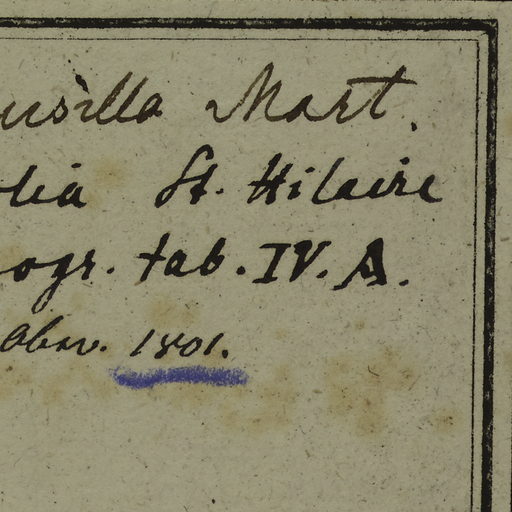 usilla Mart.
lia St. Hilaire
ogr. tab. IV. A.
Obsv. 1801.